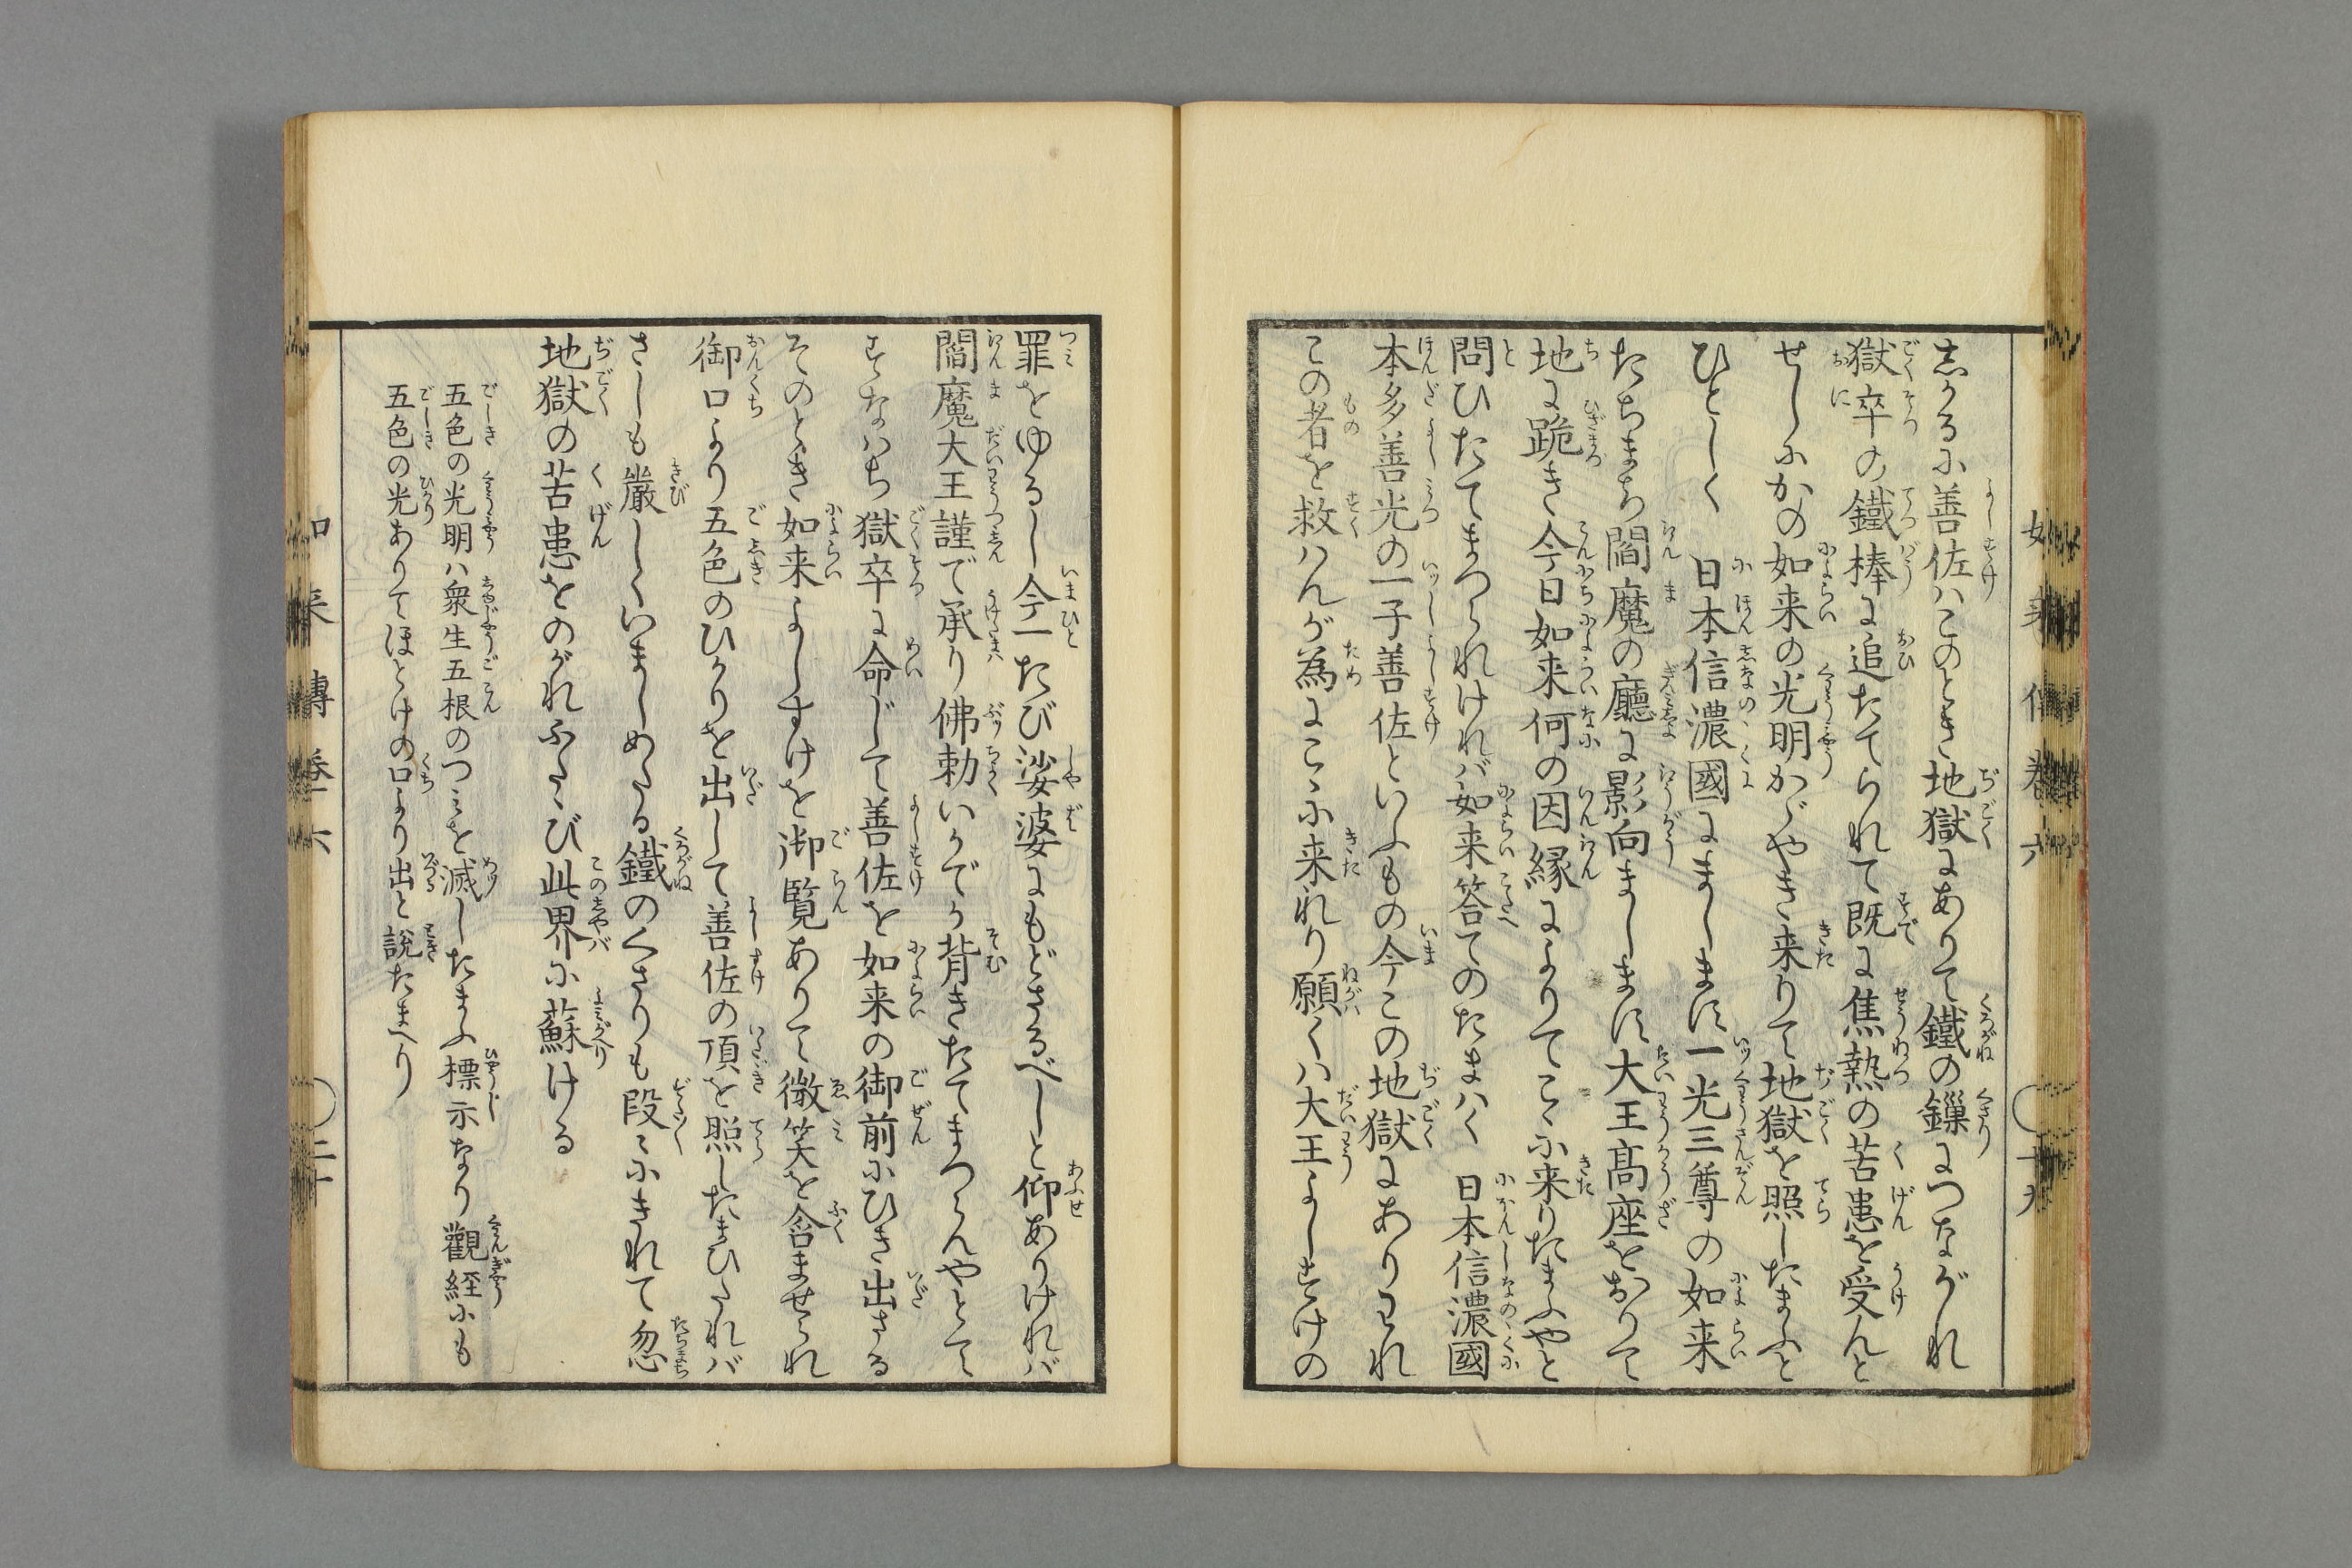 如来傳巻六
十九
志かるに善佐ハこのとき地獄にありて鐵の鏁につながれ
獄卒の鐵棒に追たてられて既に焦熱の苦患を受んと
せしにかの如来の光明かゞやき来りて地獄を照したまふと
ひとしく日本信濃國にまします一光三尊の如来
たちまち閻魔の廳に影向まします大王髙座をおりて
地に跪き今日如来何の因縁によりてこゝに来りたまふやと
問ひたてまつられけれバ如来答てのたまハく日本信濃國
本多善光の一子善佐といふもの今この地獄にありわれ
この者を救ハんが為にこゝに来れり願くハ大王よしすけの
罪をゆるし今一たび娑婆にもどさるべしと仰ありけれバ
閻魔大王謹で承り佛勅いかでか背きたてまつらんやとて
すなハち獄卒に命じて善佐を如来の御前にひき出さる
そのとき如来よしすけを御覧ありて微笑を含ませられ
御口より五色のひかりを出して善佐の頂を照したまひたれバ
さしも嚴しくいましめたる鐵のくさりも段〻にきれて忽
地獄の苦患をのがれふたゝび此界に蘇ける
五色の光明ハ衆生五根のつミを滅したまふ標示なり觀経にも
五色の光ありてほとけの口より出と說たまへり
如来傳巻六
二十